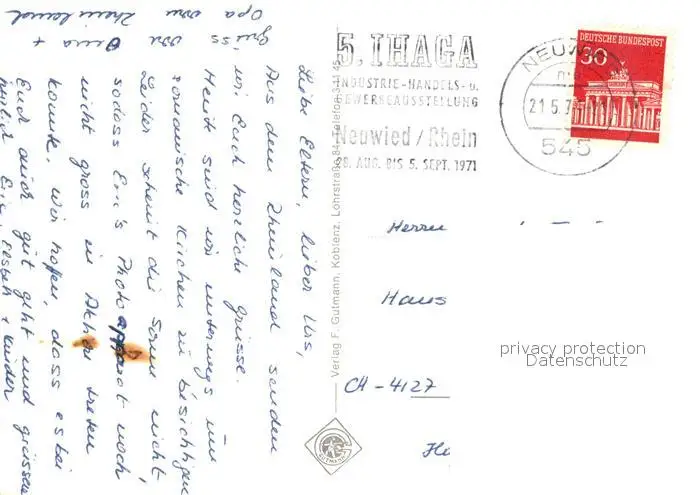 Liebe Eltern, lieber Urs,
Aus dem Rheinland senden
wir Euch herzliche Grüsse.
Heute sind wir unterwegs um
romanische Kirchen zu besichtigen
Leider scheint die Sonne nicht,
sodass Eric's Photoapparat noch
nicht gross in Aktion treten
konnte. Wir hoffen, dass es bei
Euch auch gut geht und grüssen
Eric, Elsbeth + Kinder
Gruss von Oma +
Opa vom Rheinland
Verlag F. Gutmann, Koblenz, Lohrstraße 84, Telefon
GUTMANN
5. IHAGA
INDUSTRIE-HANDELS- u.
GEWERBEAUSSTELLUNG
Neuwied / Rhein
28. AUG. BIS 5. SEPT. 1971
NEUWIED
21.5.7
545
DEUTSCHE BUNDESPOST
30
Herrn
Hans
CH-4127
privacy protection
Datenschutz